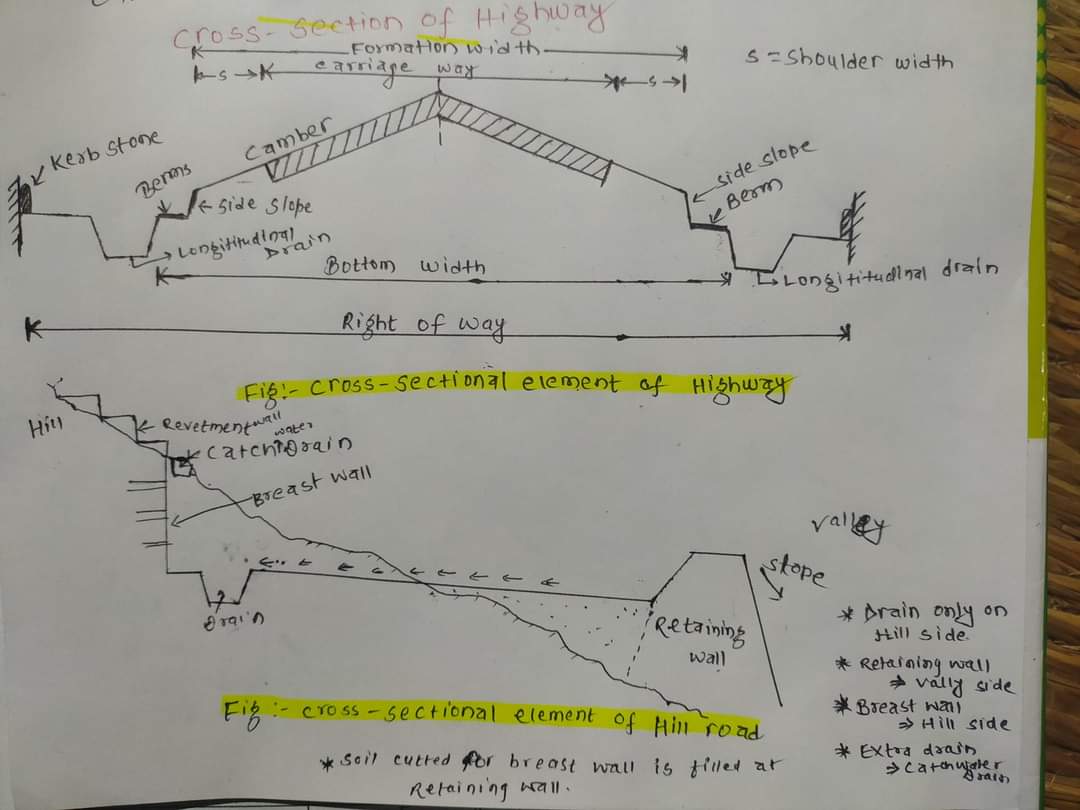 Cross-section of Highway
Formation width
S = Shoulder width
S carriage way S
Kerb stone
Camber
Berms
side slope
side slope
Berm
Longititudinal
Drain
Bottom width
Longititudinal drain
Right of way
Fig:- Cross-sectional element of Highway
Hill
Revetment wall
water
Catch Drain
Breast wall
valley
slope
Drain
Retaining
wall
* Drain only on
Hill side.
* Retaining wall
⇒ Vally side
* Breast wall
⇒ Hill side
* Extra drain
⇒ Catchwater
Drain
Fig :- cross-sectional element of Hill road
* Soil cutted for breast wall is filled at
Retaining wall.